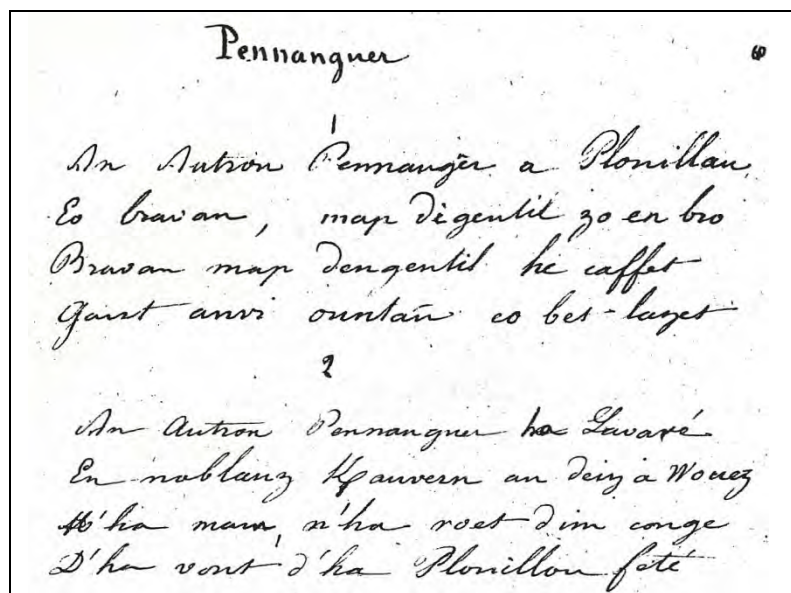 Pennanguer
60
1
An Autron Pennangũer a Plonillau,
Eo bravan, map digentil zo en bro
Bravan map dengentil he caffet
Gant anvi ountañ eo bet lazet
2
An Autron Pennanguer ha Lavaré
En noblanz Kauvern an deiz a Wouez
M'ha mam, n'ha roet d'im conge
D'ha vont d'ha Plonillou feté